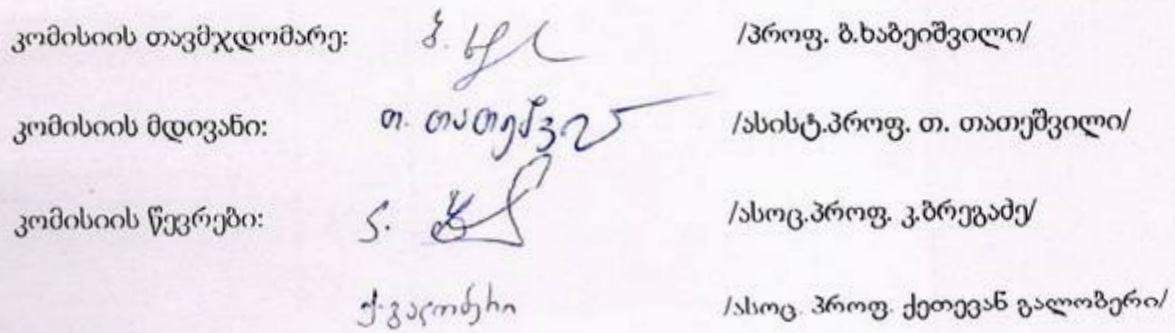 კომისიის თავმჯდომარე: /პროფ. ბ.ხაბეიშვილი/
კომისიის მდივანი: თ. თათეშვ /ასისტ.პროფ. თ. თათეშვილი/
კომისიის წევრები: /ასოც.პროფ. კ.ბრეგაძე/
ქ.გალობერი /ასოც. პროფ. ქეთევან გალობერი/